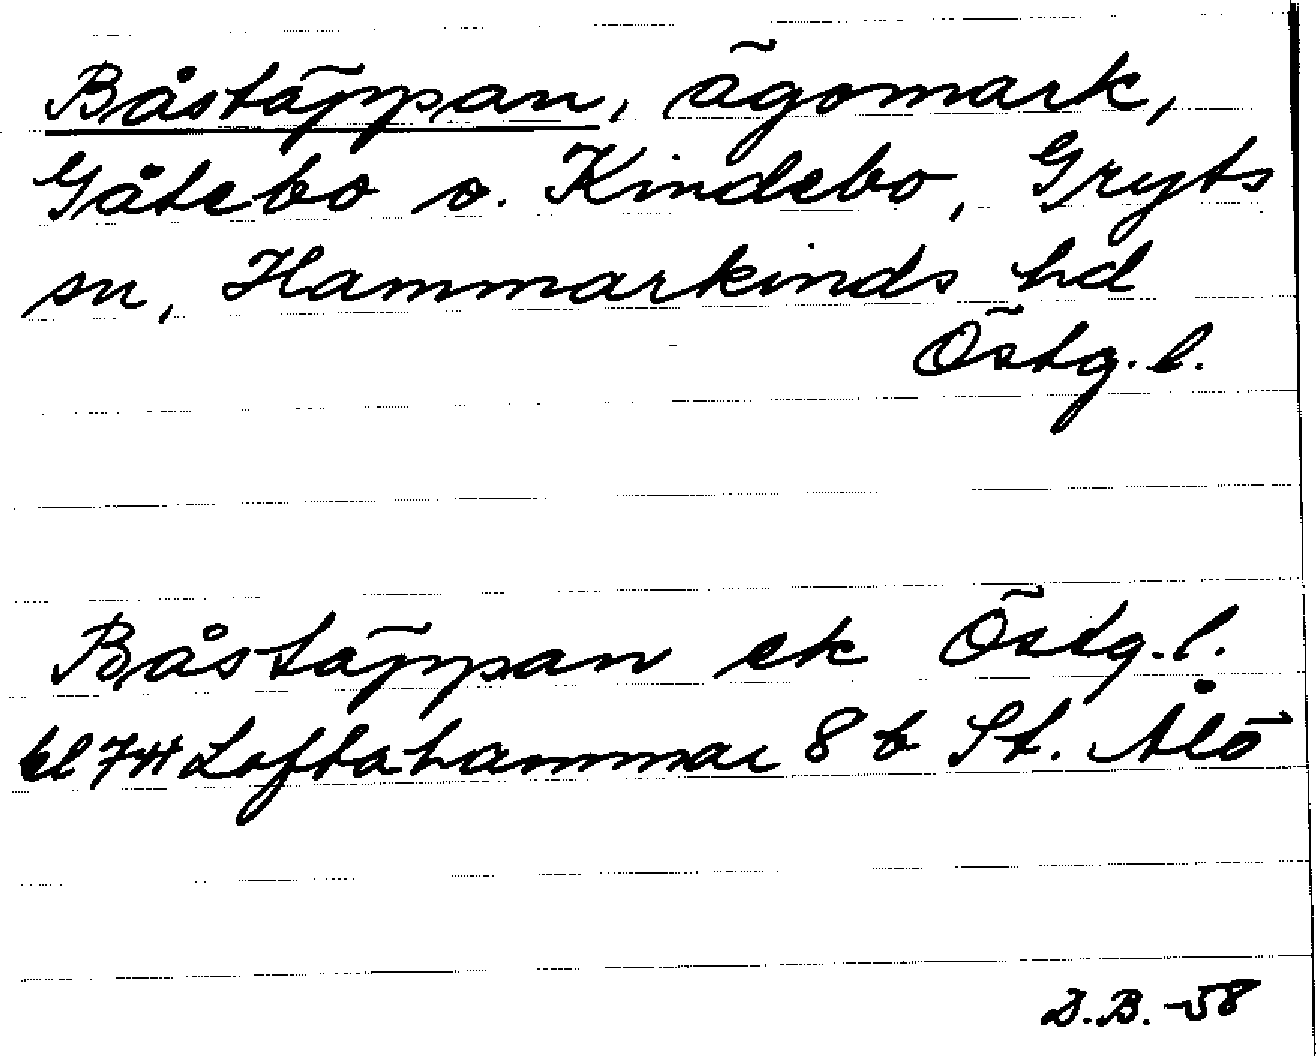 Båstäppan, ägomark,
Gåtebo o. Kindebo, Gryts
sn, Hammarkinds hd
Östg. l.
Båstäppan ek Östg. l.
bl 7411 Loftahammar 8 b St. Ålö
D.B. -58